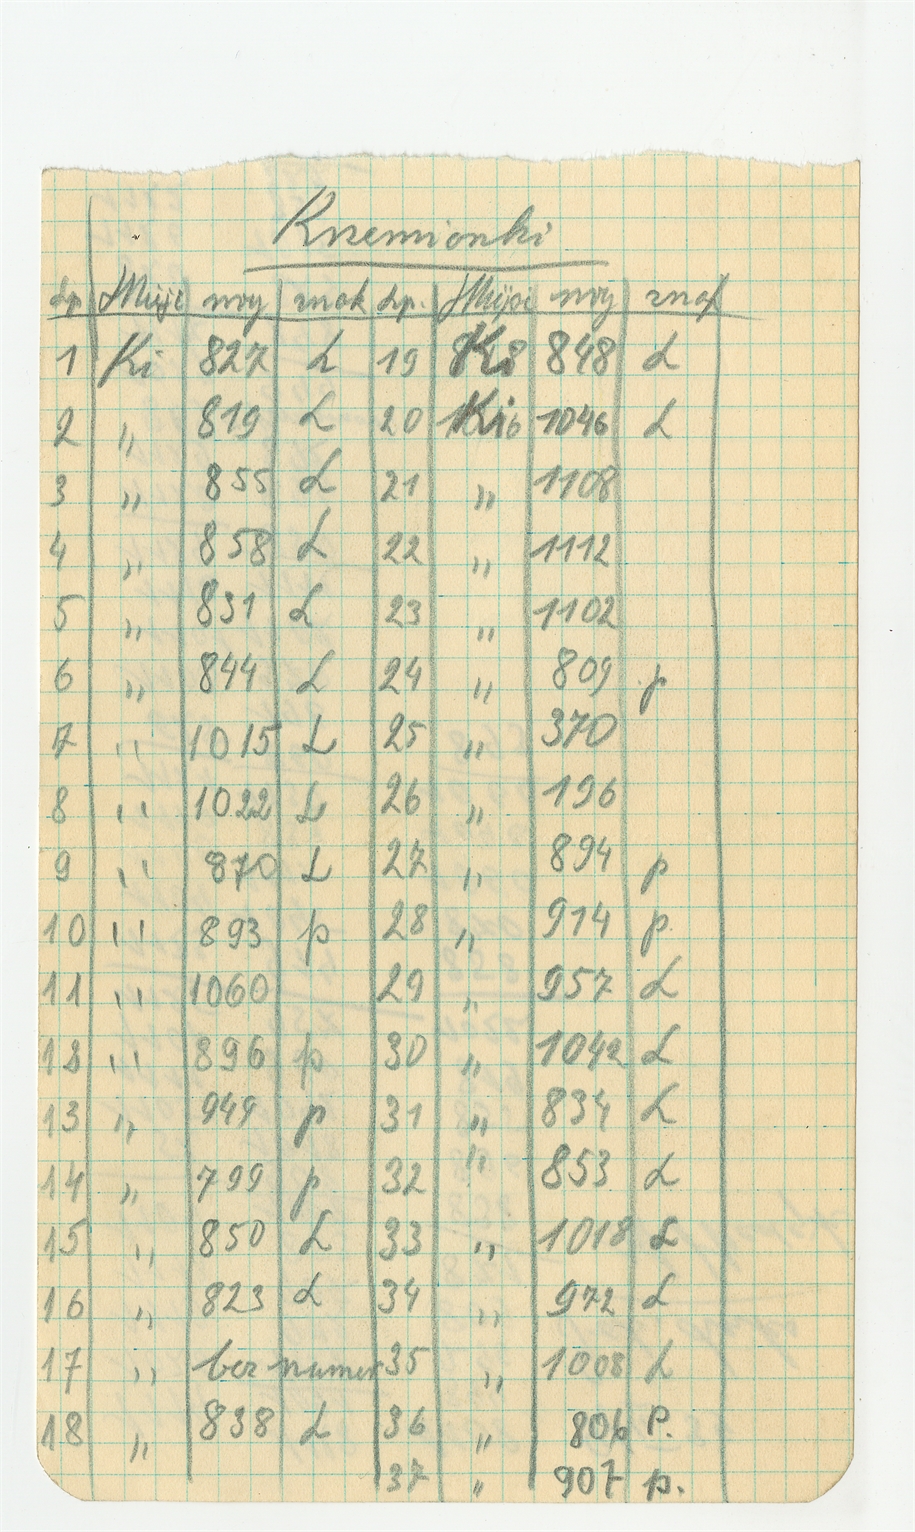 Krzemionki
Lp. nry znak Lp. nry znak
1 Ki 827 L 19 Ki 848 L
2 " 819 L 20 Ki 1046 L
3 " 855 L 21 " 1108
4 " 858 L 22 " 1112
5 " 831 L 23 " 1102
6 " 844 L 24 " 809 p
7 " 1015 L 25 " 370
8 " 1022 L 26 " 196
9 " 870 L 27 " 894 p
10 " 893 p 28 " 914 p.
11 " 1060 29 " 957 L
12 " 896 p 30 " 1042 L
13 " 949 p 31 " 834 L
14 " 799 p 32 " 853 L
15 " 850 L 33 " 1018 L
16 " 823 L 34 " 972 L
17 " bez numer 35 " 1008 L
18 " 838 L 36 " 806 P.
37 " 907 p.